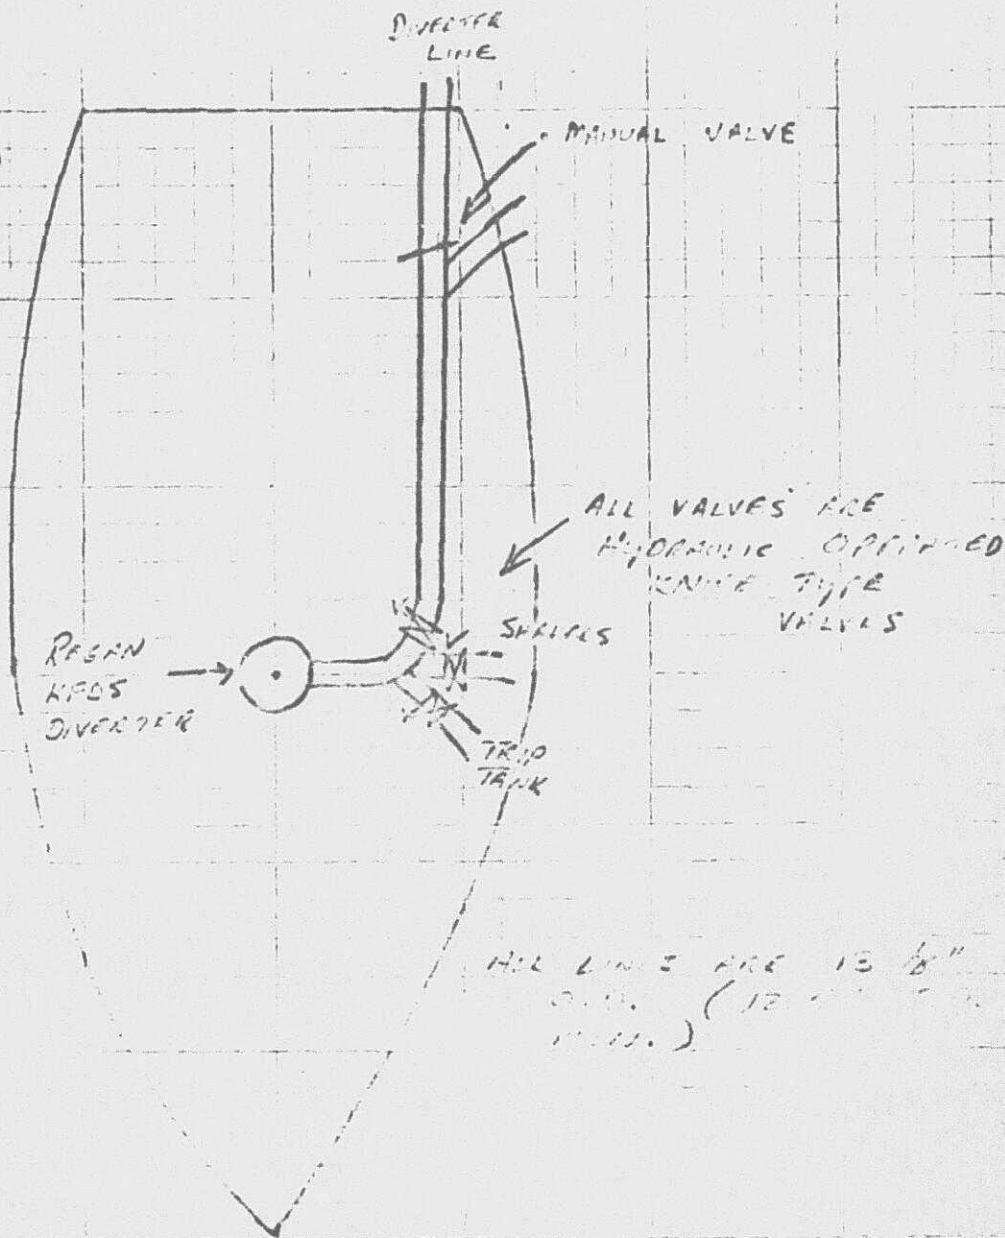 DIVERTER
LINE
MANUAL VALVE
ALL VALVES ARE
HYDRAULIC OPERATED
KNIFE TYPE
VALVES
SHAKERS
REGAN
KFDS
DIVERTER
TRIP
TANK
ALL LINES ARE 13
O.D. (12